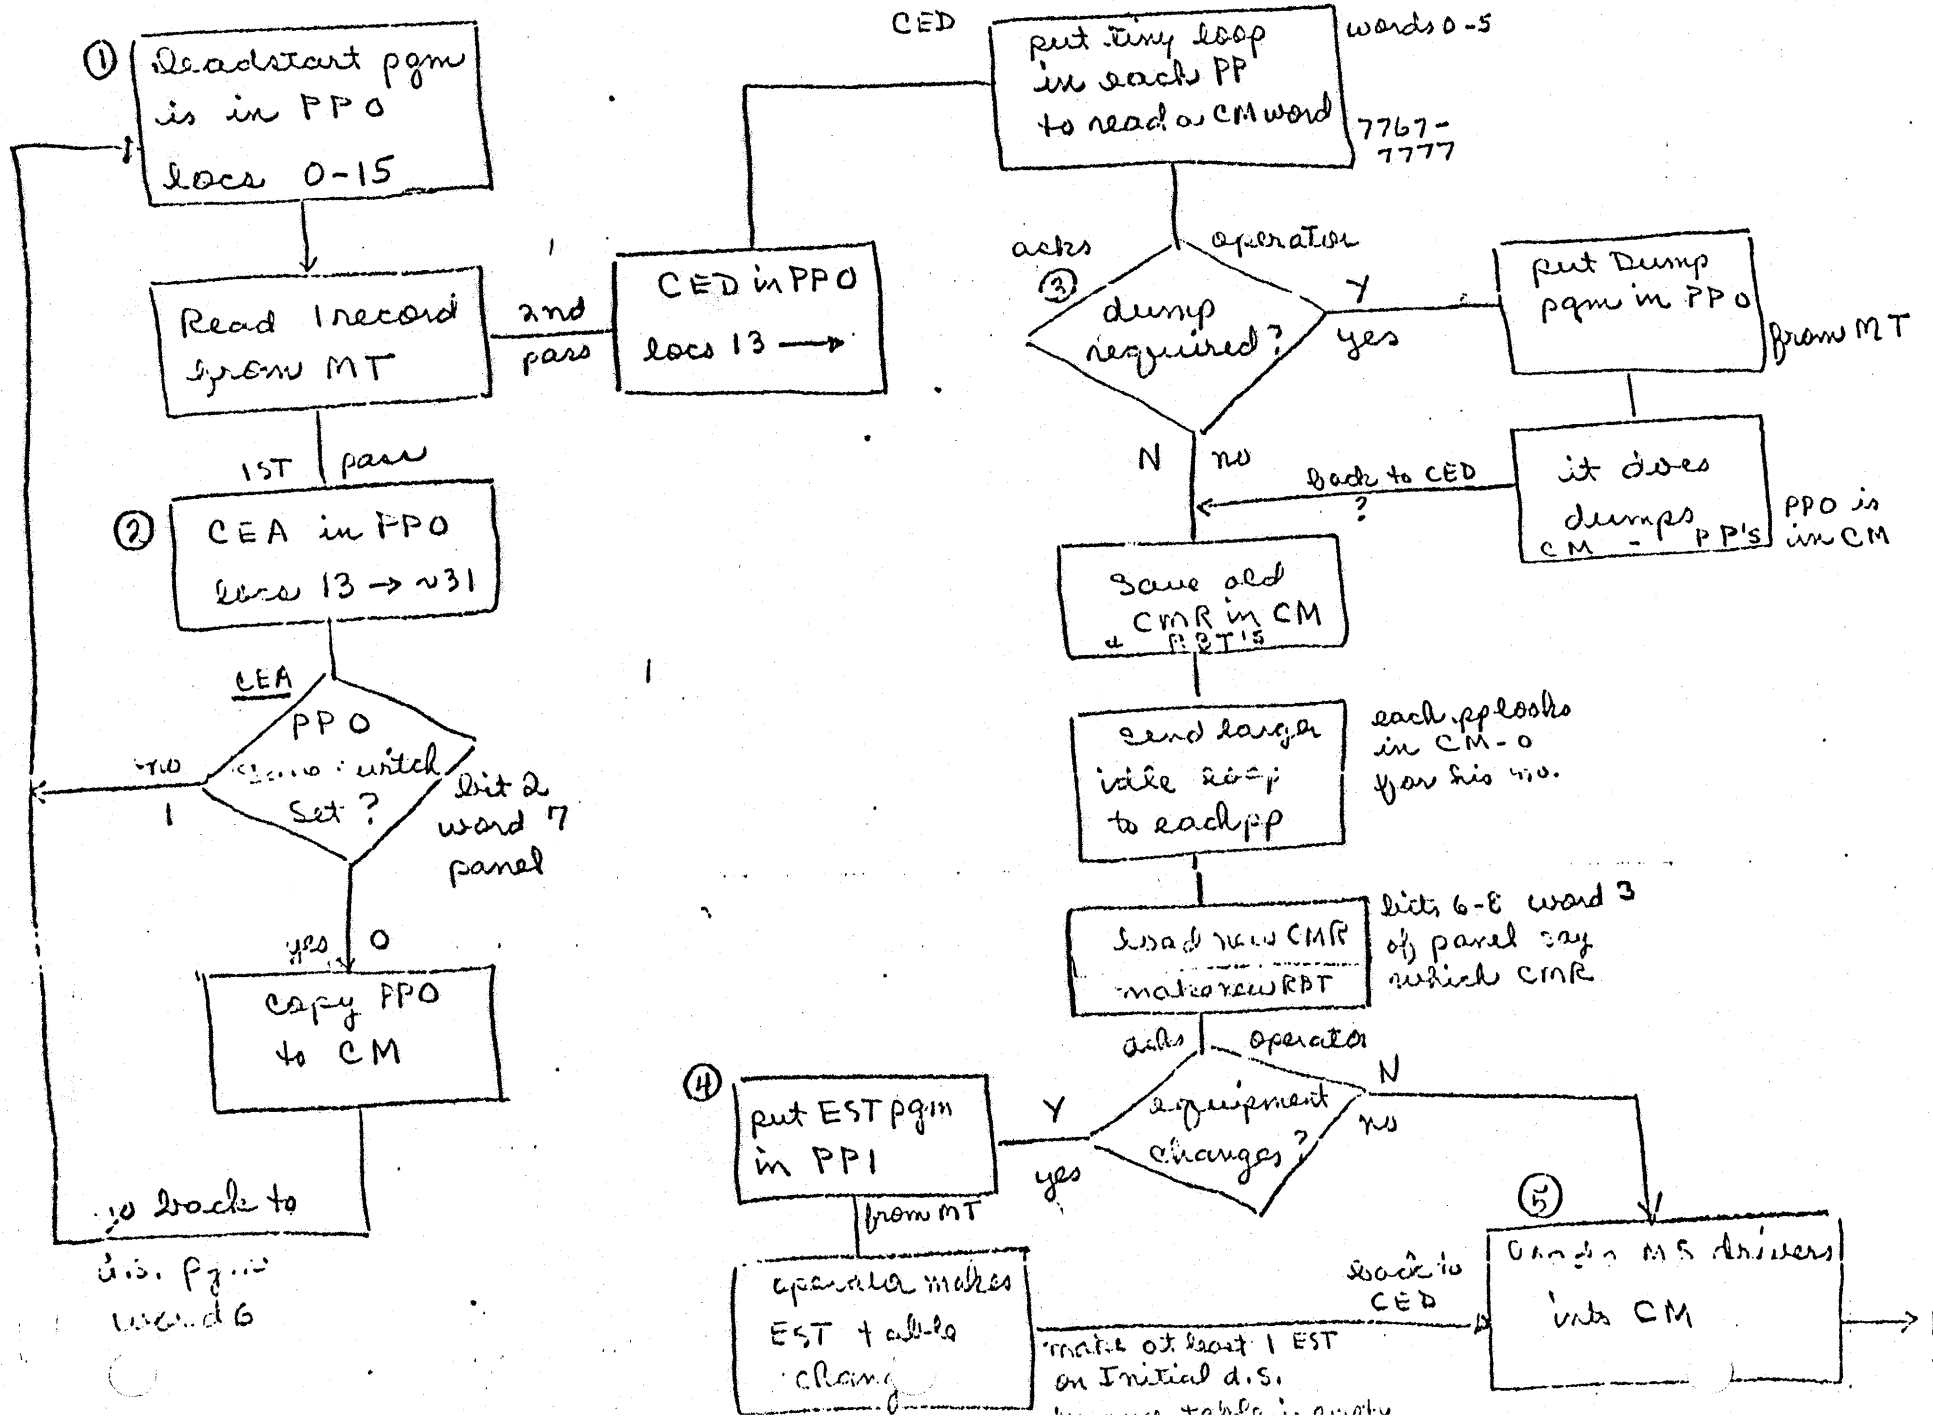 ①
Deadstart pgm
is in PPO
locs 0-15
Read 1 record
from MT
2nd
pass
CED in PPO
locs 13 →
1ST pass
②
CEA in PPO
locs 13 → ~31
CEA
PPO
switch
Set?
no
1
bit 2
word 7
panel
yes 0
copy PPO
to CM
go back to
d.s. pgm
word 6
CED
put tiny loop
in each PP
to read a CM word
words 0-5
7767-
7777
asks operator
③
dump
required?
Y
yes
put Dump
pgm in PPO
from MT
it does
dumps
CM - PP's
PPO is
in CM
back to CED
?
N no
Save old
CMR in CM
& RBT's
send larger
idle loop
to each pp
each pp looks
in CM-0
for his no.
load new CMR
make new RBT
bits 6-8 word 3
of panel say
which CMR
asks operator
equipment
changes?
N
no
Y
yes
④
put EST pgm
in PP1
from MT
operator makes
EST table
chang
back to
CED
make at least 1 EST
on Initial d.s.
table is empty
⑤
MS drivers
into CM